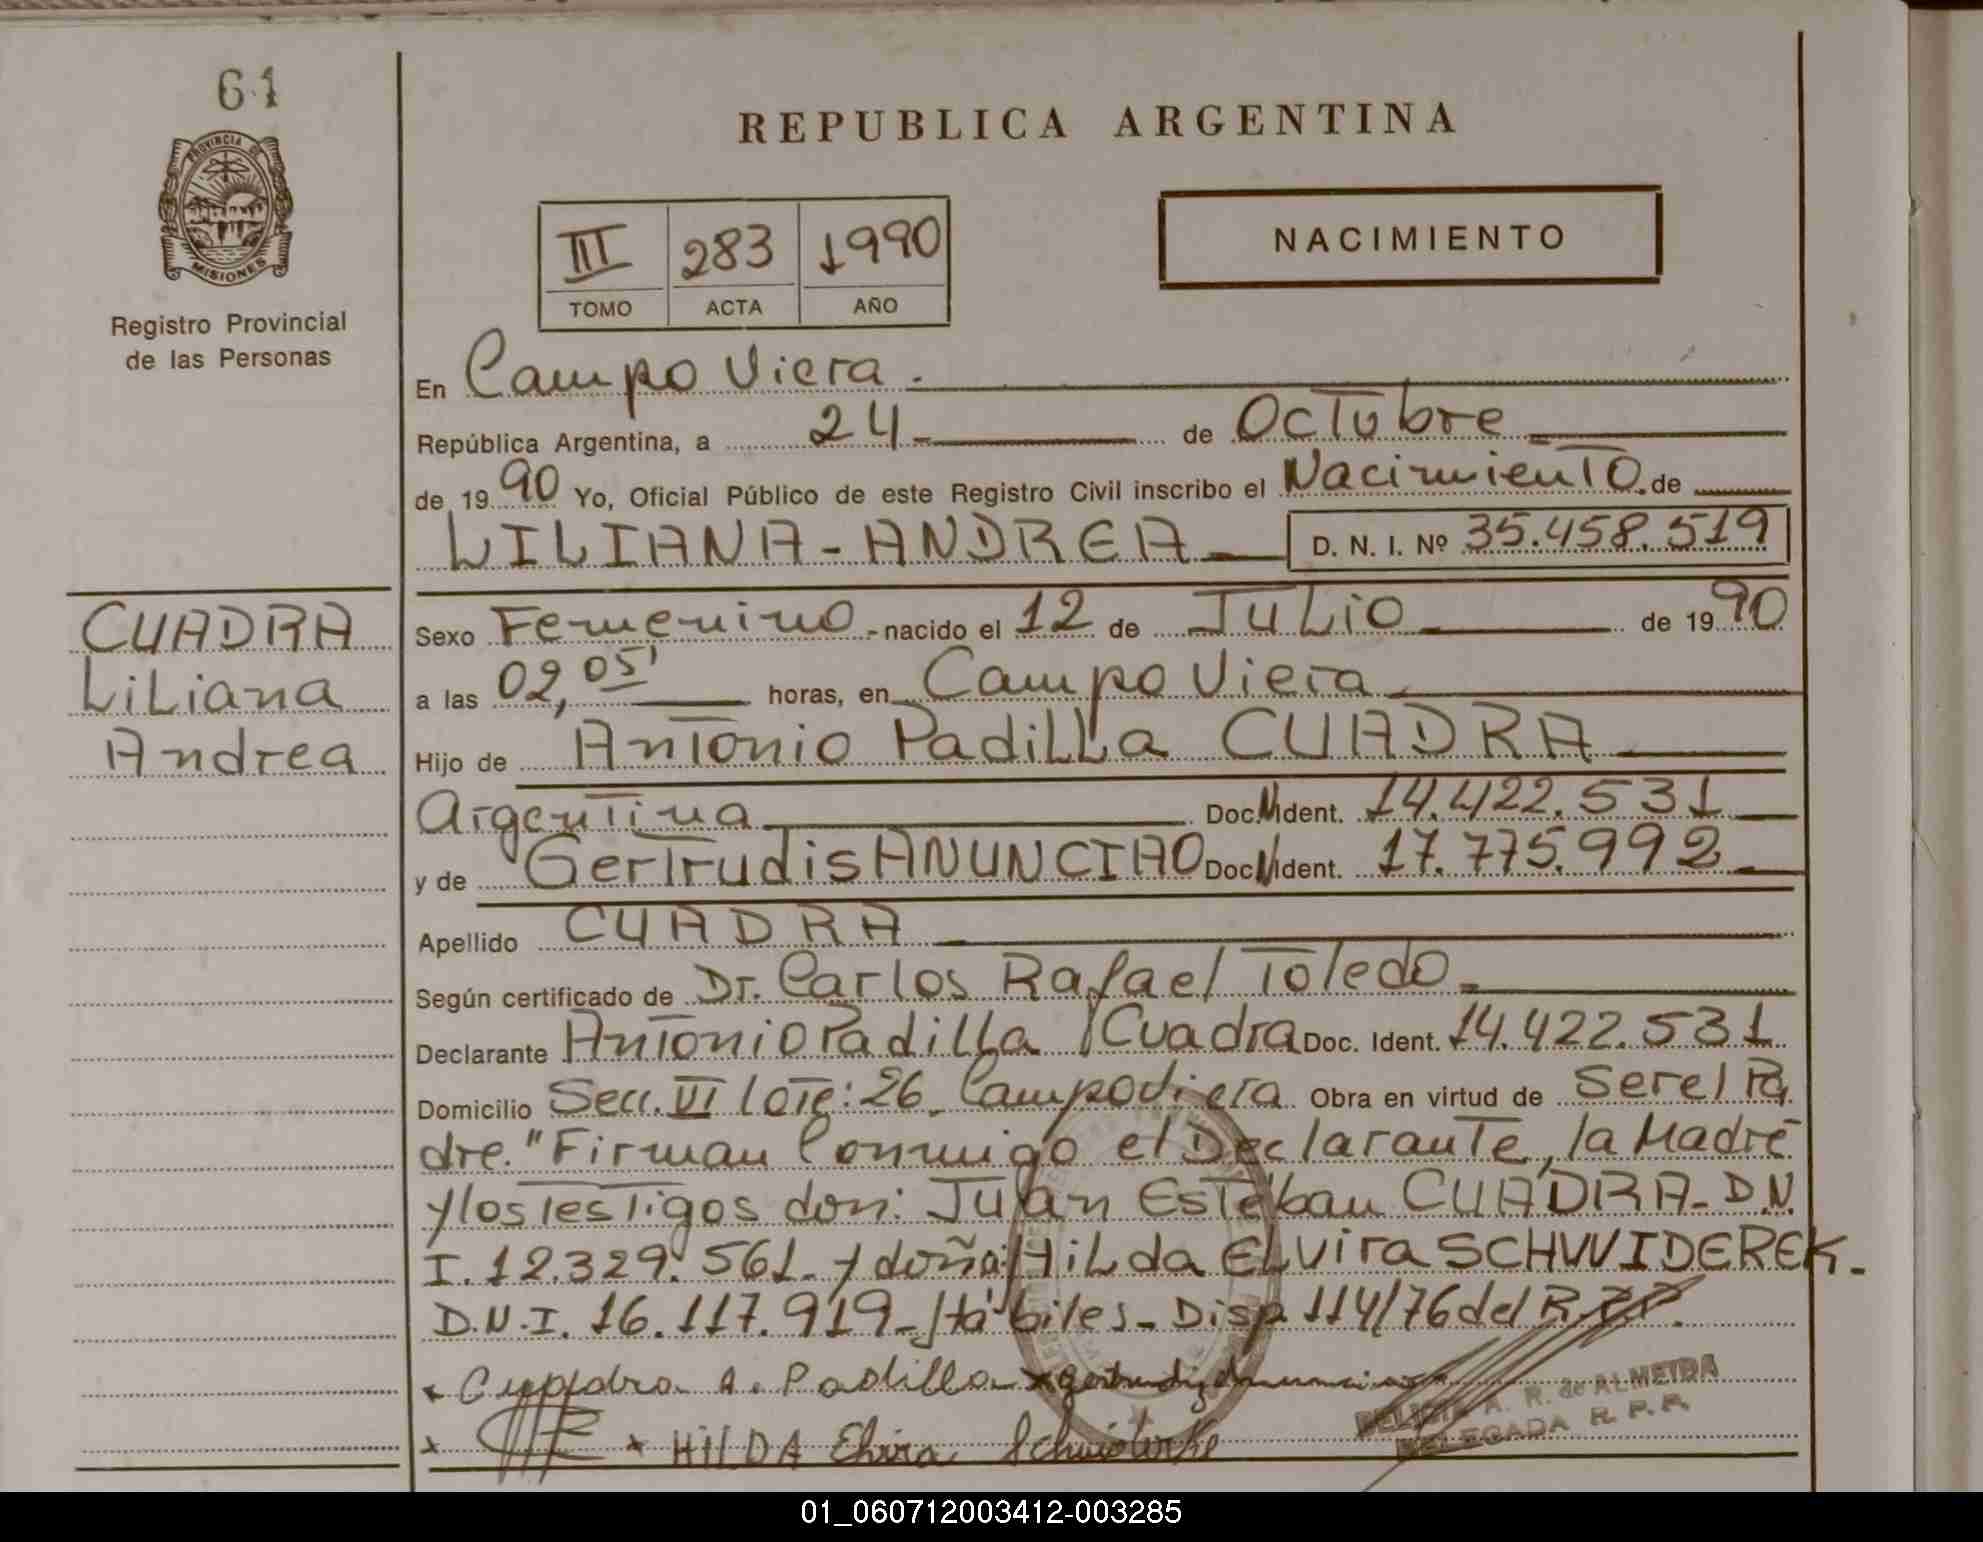 61
PROVINCIA DE
MISIONES
Registro Provincial
de las Personas
REPUBLICA ARGENTINA
III 283 1990
TOMO ACTA AÑO
NACIMIENTO
En Campo Viera.
República Argentina, a 24 de Octubre
de 1990 Yo, Oficial Público de este Registro Civil inscribo el Nacimiento de
LILIANA-ANDREA D. N. I. Nº 35.458.519
CUADRA
Liliana
Andrea
Sexo Femenino - nacido el 12 de Julio de 1990
a las 02,05' horas, en Campo Viera
Hijo de Antonio Padilla CUADRA
Argentina Doc. N Ident. 14.422.531
y de Gertrudis ANUNCIAO Doc N Ident. 17.775.992
Apellido CUADRA
Según certificado de Dr. Carlos Rafael Toledo
Declarante Antonio Padilla Cuadra Doc. Ident. 14.422.531
Domicilio Secc. VI lote: 26. Campo Viera Obra en virtud de Ser el Pa
dre. "Firman Conmigo el Declarante, la Madre
y los Testigos don: Juan Esteban CUADRA- D.N.
I. 12.329.561- y doña: Hilda ELvira SCHWIDEREK-
D.N.I. 16.117.919- Hábiles- Disp. 114/76 del R.P.P.
Cuadra A. Padilla x gertrudiz Anunciao
x HILDA Elvira
R. de ALMEIDA
DELEGADA R. P. P.
01_060712003412-003285